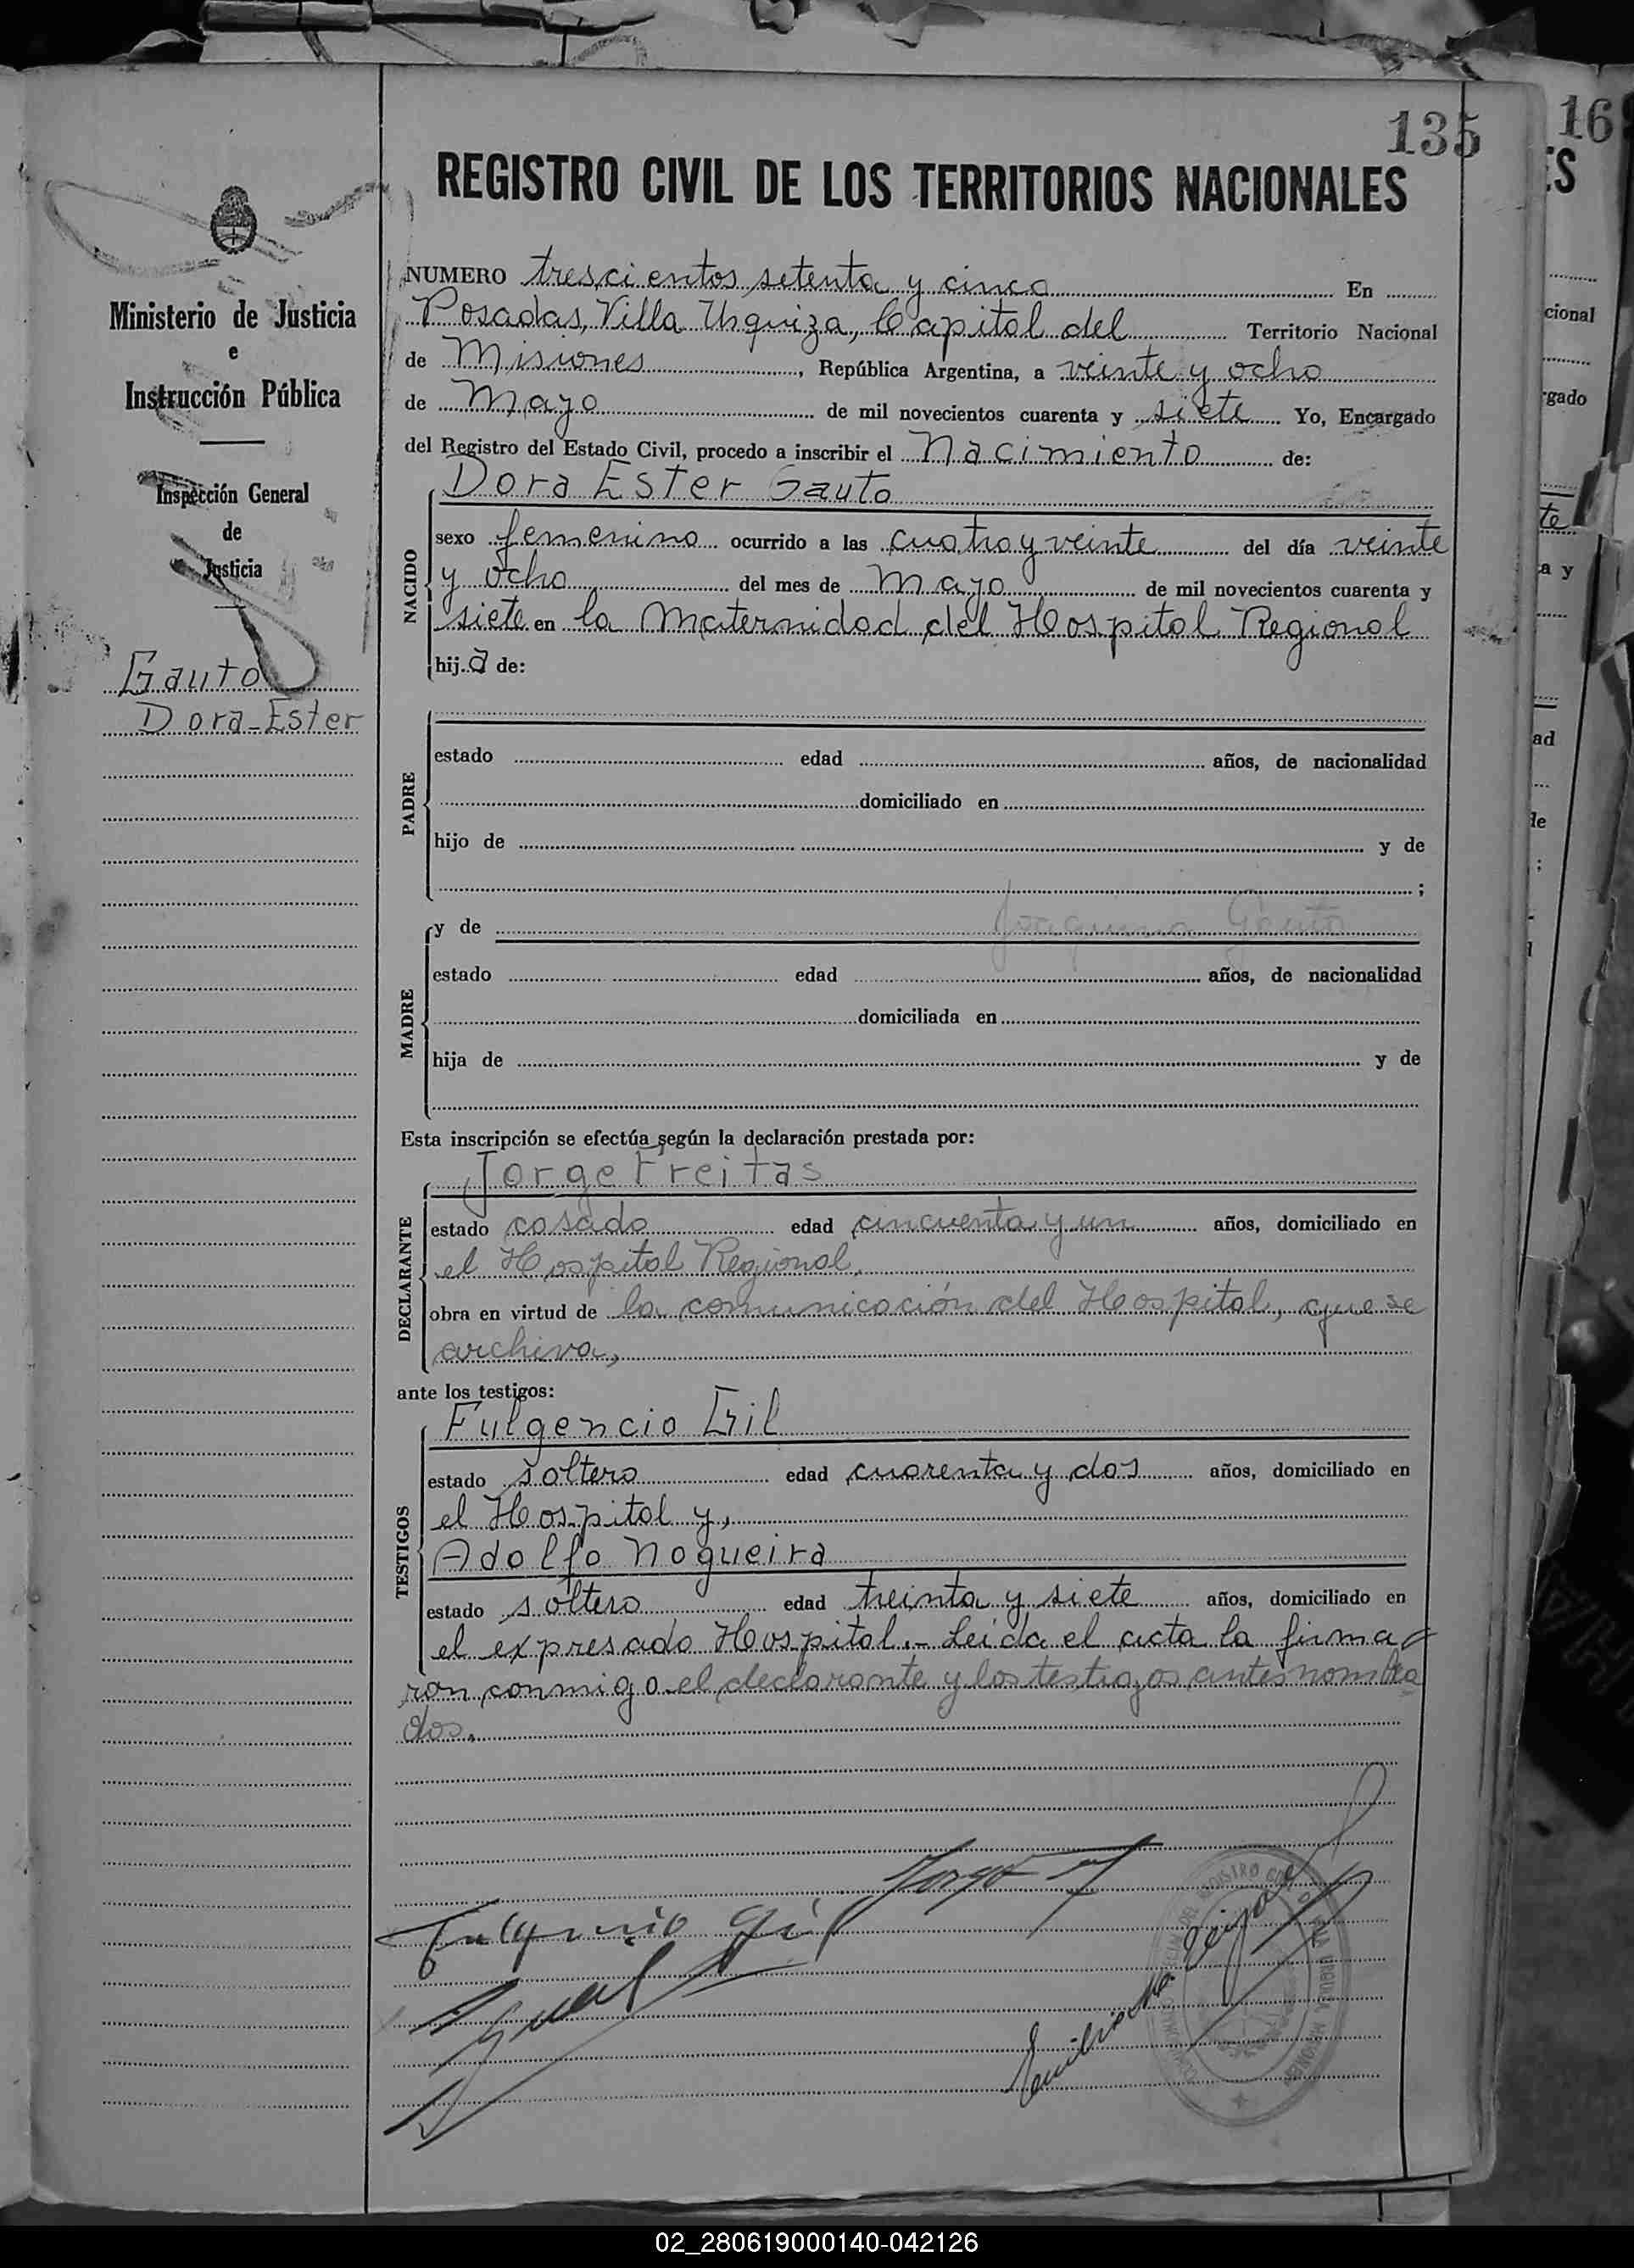 135
16
REGISTRO CIVIL DE LOS TERRITORIOS NACIONALES
ES
Ministerio de Justicia
e
Instrucción Pública
Inspección General
de
Justicia
Gauto
Dora-Ester
NUMERO trescientos setenta y cinco En
Posadas, Villa Urquiza, Capital del Territorio Nacional
de Misiones, República Argentina, a veinte y ocho
de Mayo de mil novecientos cuarenta y siete Yo, Encargado
del Registro del Estado Civil, procedo a inscribir el Nacimiento de:
Dora Ester Gauto
NACIDO
sexo femenino ocurrido a las cuatro y veinte del día veinte
y ocho del mes de Mayo de mil novecientos cuarenta y
siete en la Maternidad del Hospital Regional
hij.a de:
PADRE
estado edad años, de nacionalidad
domiciliado en
hijo de y de
;
MADRE
y de Joaquina Gauto
estado edad años, de nacionalidad
domiciliada en
hija de y de
Esta inscripción se efectúa según la declaración prestada por:
DECLARANTE
Jorge Freitas
estado casado edad cincuenta y un años, domiciliado en
el Hospital Regional,
obra en virtud de la comunicación del Hospital, que se
archiva,
ante los testigos:
TESTIGOS
Fulgencio Gil
estado soltero edad cuarenta y dos años, domiciliado en
el Hospital y,
Adolfo Nogueira
estado soltero edad treinta y siete años, domiciliado en
el expresado Hospital.- Leída el acta la firma-
ron conmigo el declarante y los testigos antes nombra
dos.
Jorge
Fulgencio Gil
cional
rgado
te
a y
ad
de
;
02_280619000140-042126